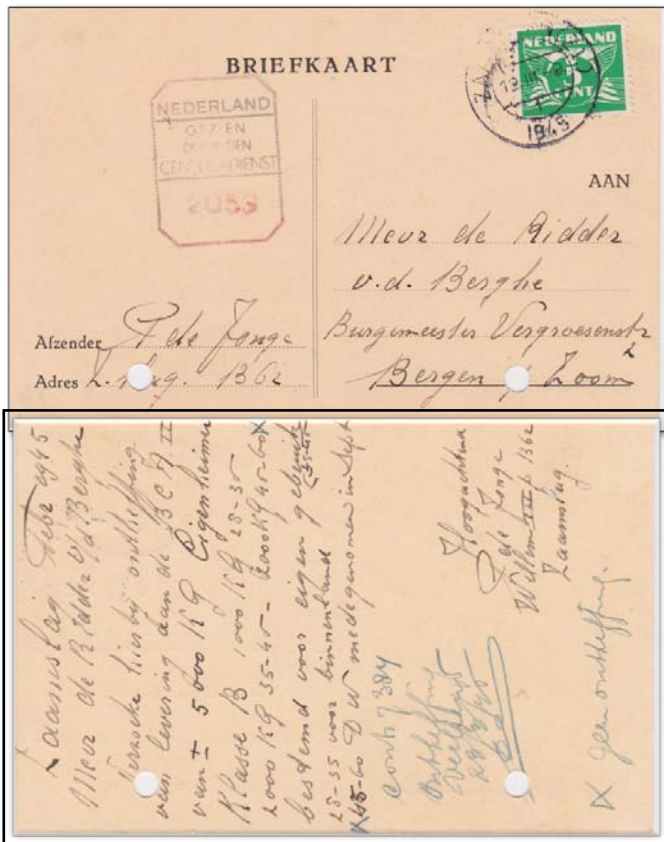 BRIEFKAART
NEDERLAND
GEZIEN
DOOR DEN
CENSUURDIENST
2053
NEDERLAND
5
CENT
19 III
1945
AAN
Mevr de Ridder
v.d. Berghe
Burgemeester
Bergen Zoom
Afzender P de Jonge
Adres Z.slag. B62
Zaamslag Febr 1945
Mevr de Ridder v/d Berghe
Verzoeke hierbij ontheffing
van levering aan de
van ± 5000 KG Eigenheimer
Klasse B 1000 KG 28-35
2000 KG 35-45 - 2000 KG 45-60 X
bestemd voor eigen gebruik
28-35 voor binnenland
X 45-60 D W medegenomen in Sept
Hoogachtend
P de Jonge
Willem III B62
Zaamslag.
contr 7384
Ontheffing
verleend
28/3/45
X geen ontheffing.